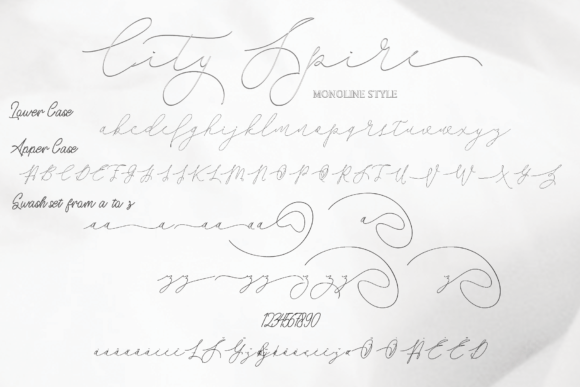 City Spire
MONOLINE STYLE
Lower Case
abcdefghijklmnopqrstuvwxyz
Apper Case
ABCDEFGHIJKLMNOPQRSTUVWXYZ
Swash set from a to z
aa a aa aa a
zz zz zz zz z
1234567890